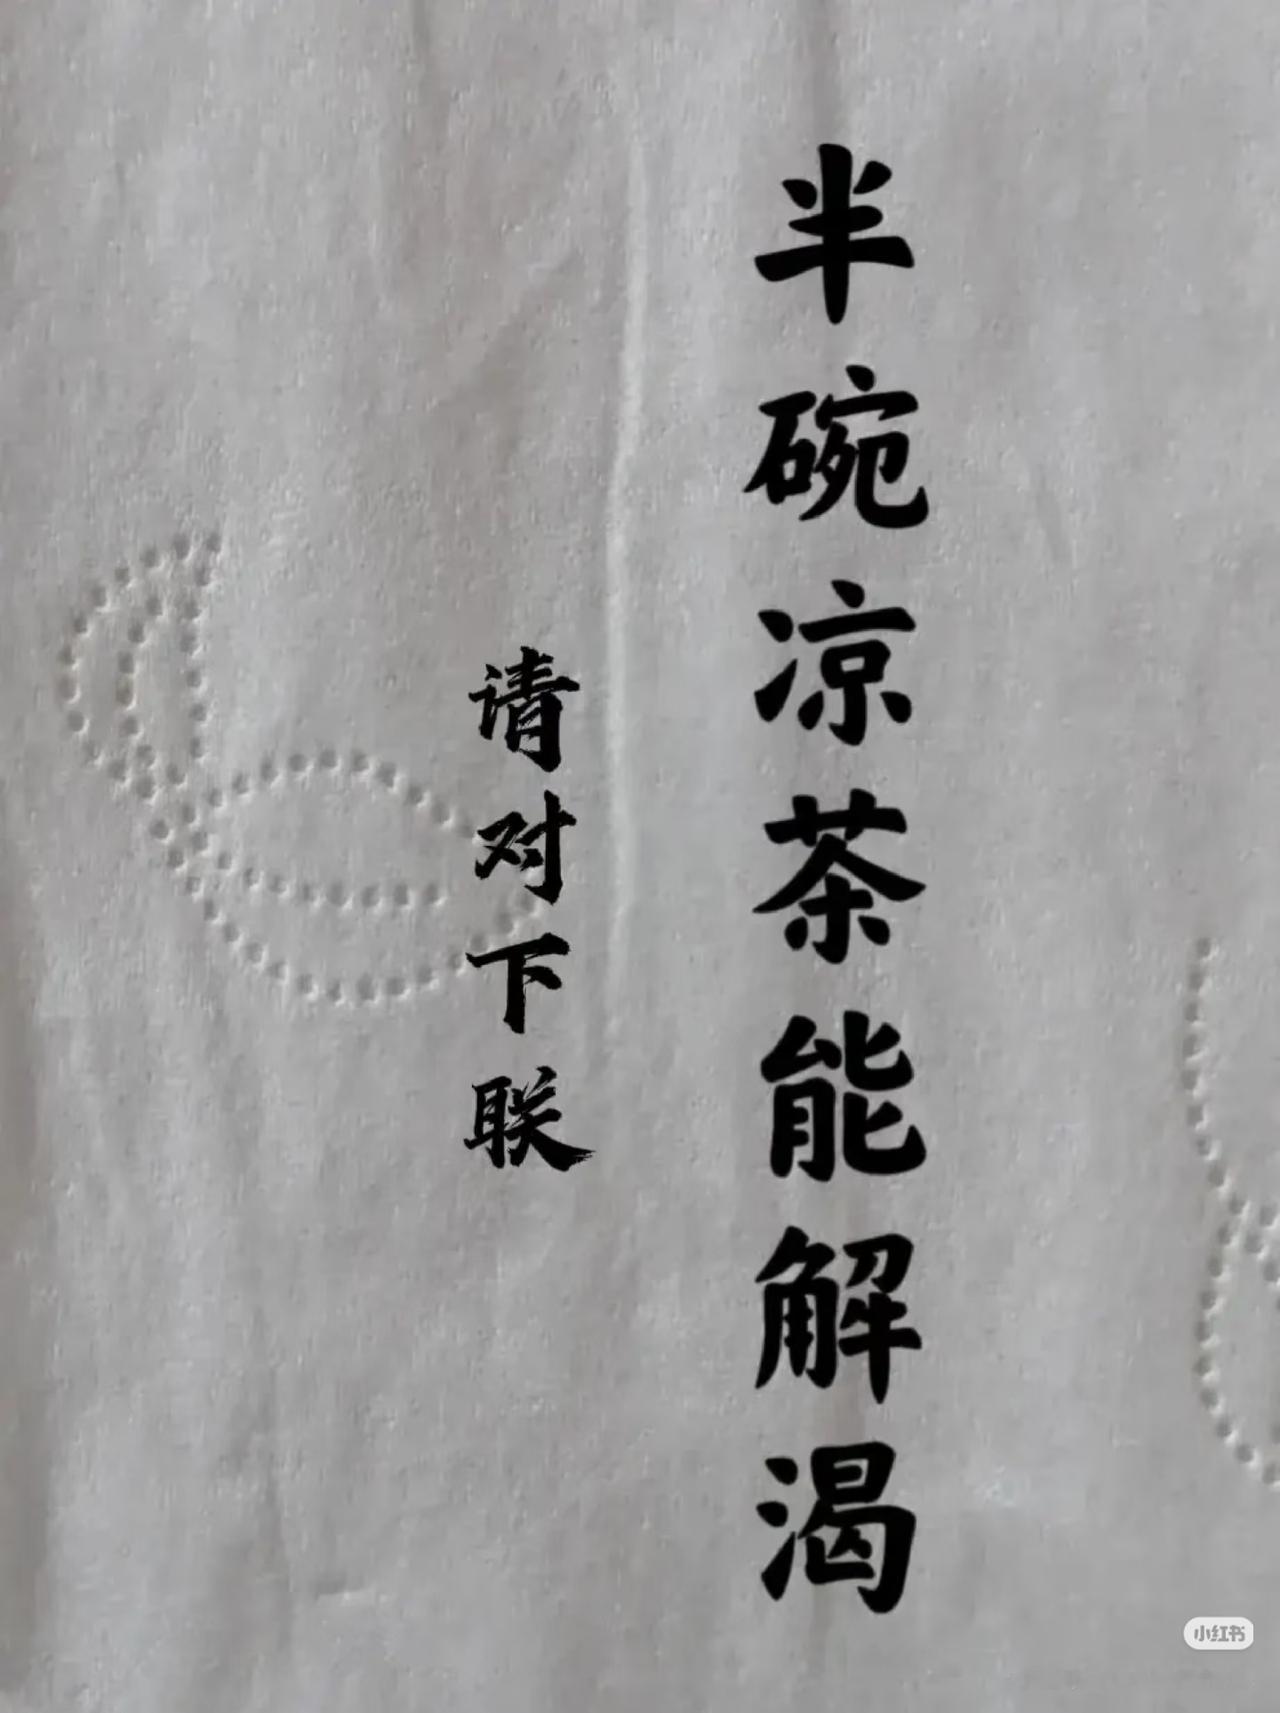 半碗凉茶能解渴
请对下联
小红书